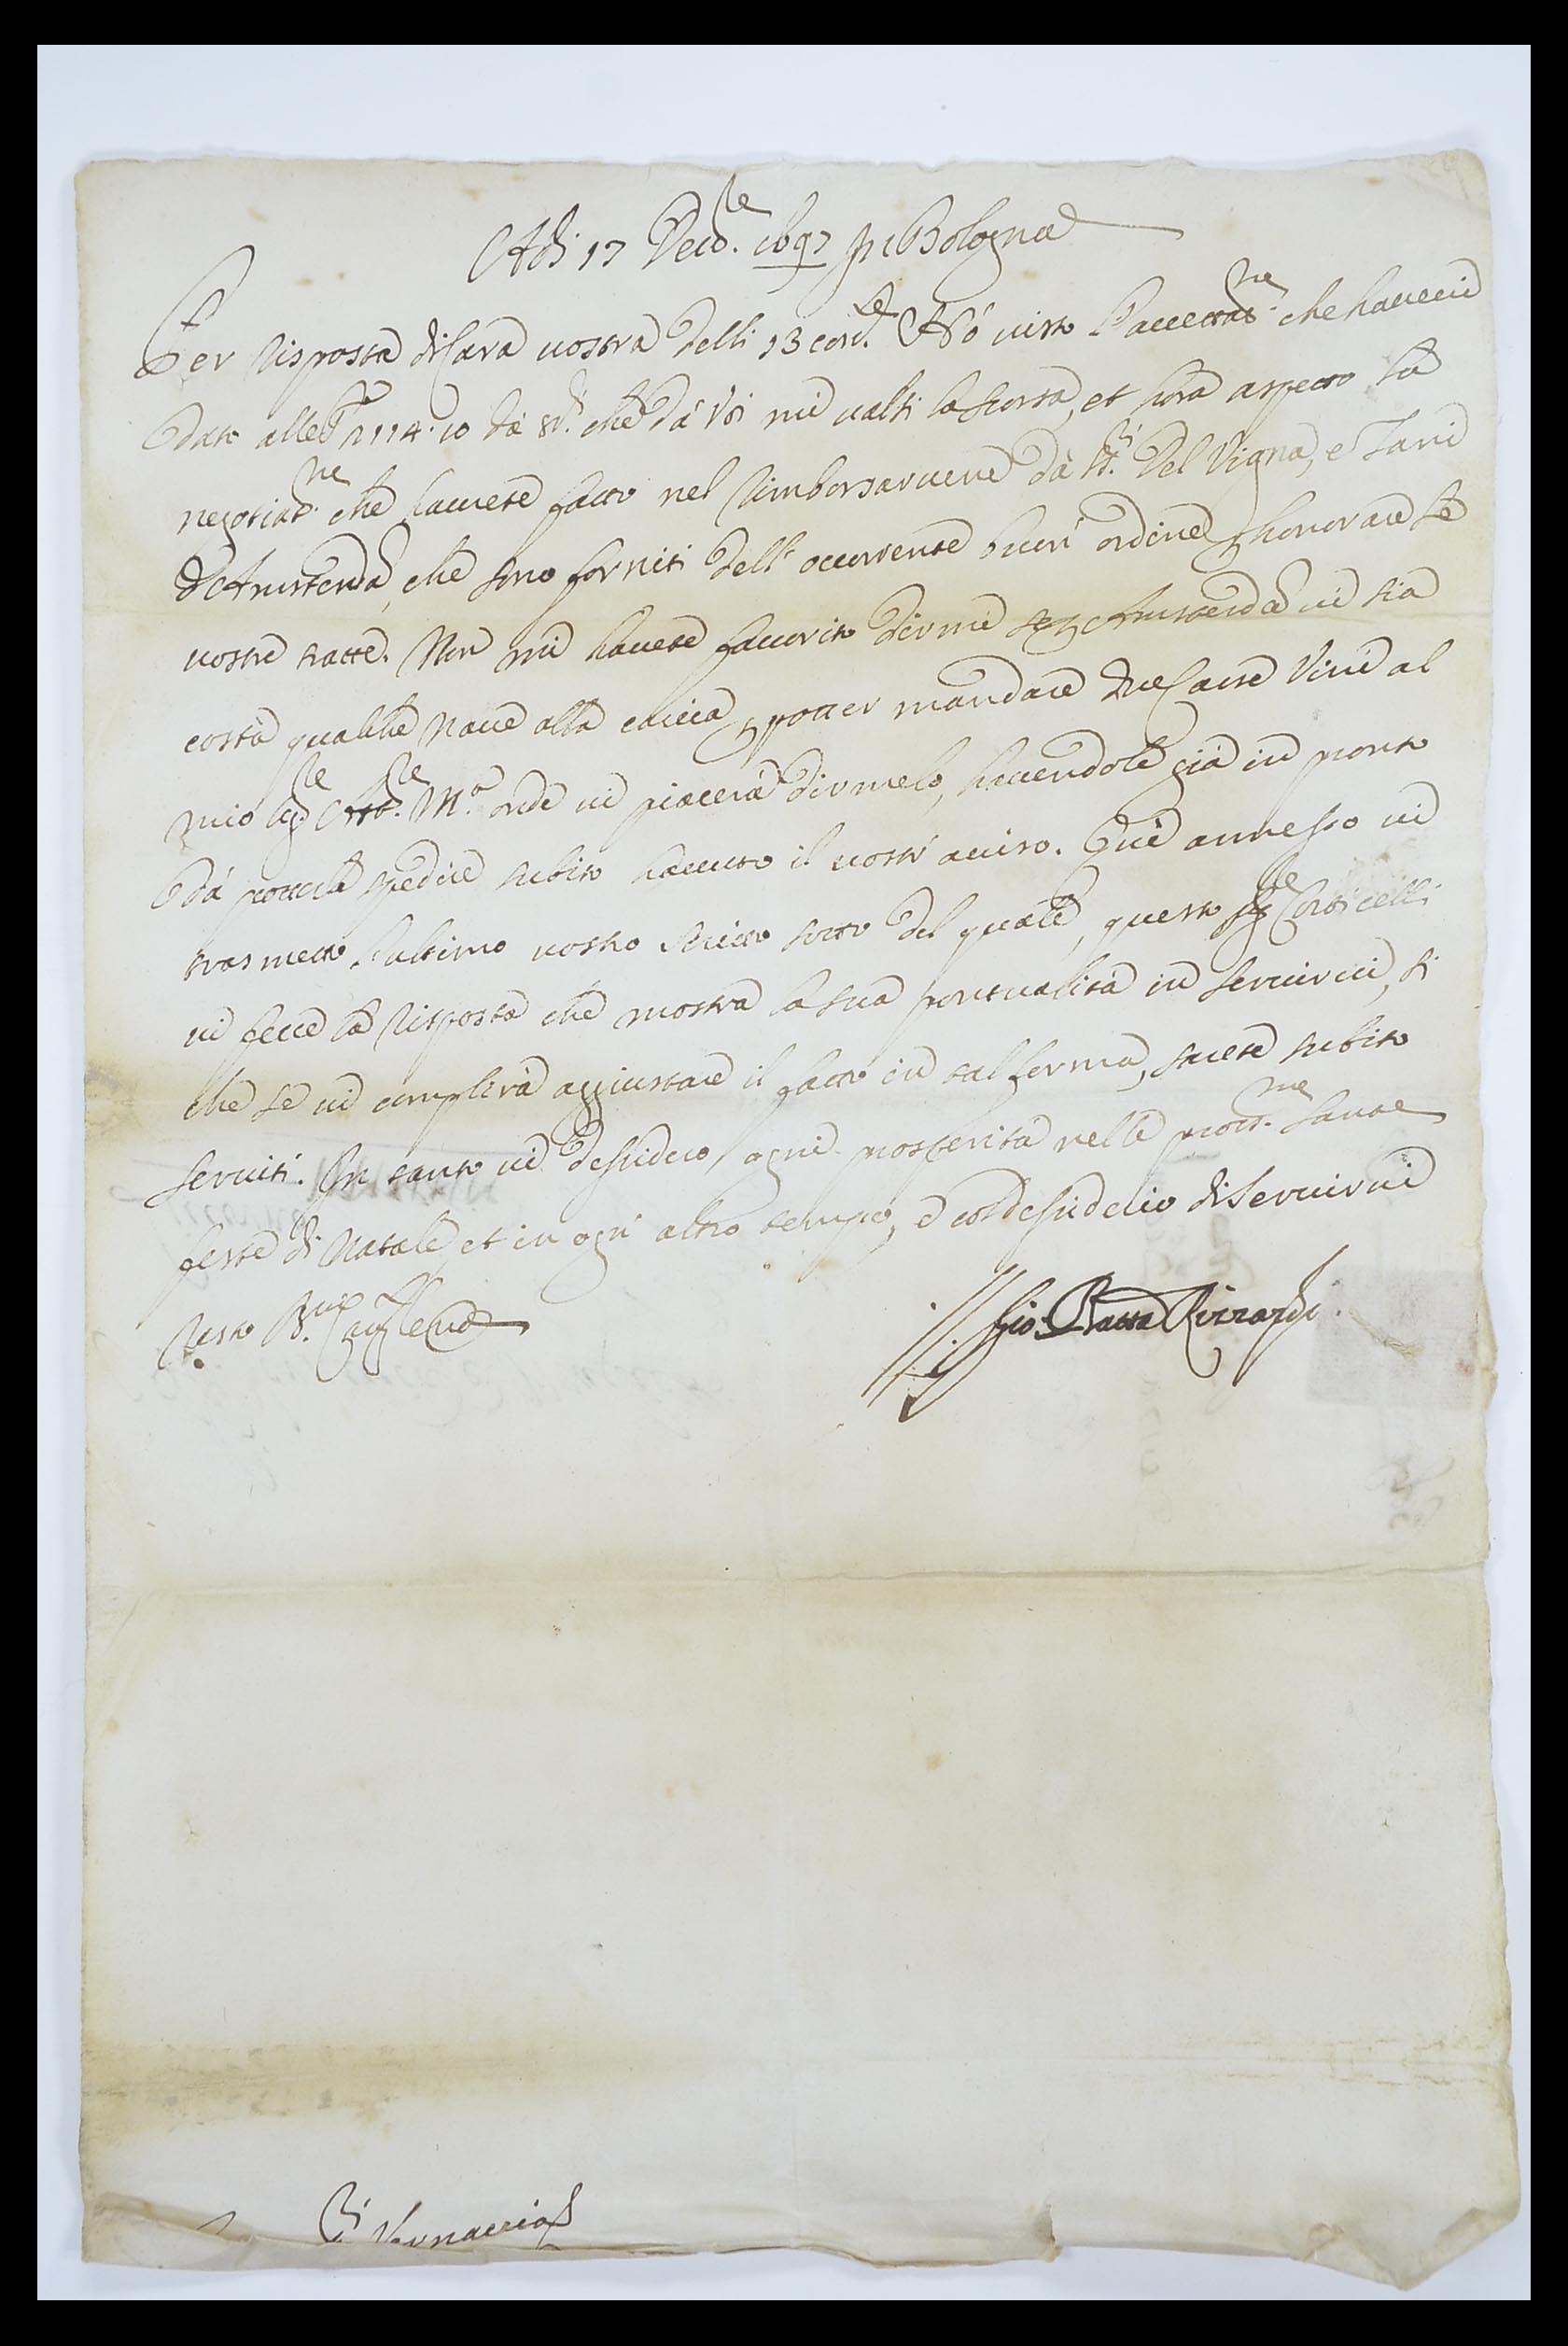 Adi 17 Decb.re 1697 In Bologna
Per risposta di cara vostra delli 13 corr.te Hò visto l'accettat.ne che havevi
dato alle 2114.10 che dà Voi mi valsi la scorsa, et hora aspetto la
negotiat.ne che havrete fatto nel rimborsarvene dà SS.ri Del Vigna, e Tani
d'Amsterdã, che sono forniti dell' occorrente buon' ordine p honorare le
vostre tratte. Non mi havete favorito dirmi se p Amsterdã vi sia
costà qualche Nave alla carica, p potter mandare due Casse Vini al
mio Sig.re onde vi piacerà dirmelo, havendole già in pronto
dà potterle spedire subito havuto il vostr' aviso. Quì annesso vi
trasmetto l'ultimo vostro scritto sotto del quale, questo Sig.re Corticelli
vi fecce la risposta che mostra la sua pontualità in servirvi, si
che se vi complirà aggiustare il fatto in tal forma, sarete subito
serviti. In tanto vi desidero ogni prosperità nelle pross.me Sante
feste di Natale, et in ogn' altro tempo, e col desiderio di servirvi
resto B.
Gio: Batta Rizzardi
SS.ri Vernaccia